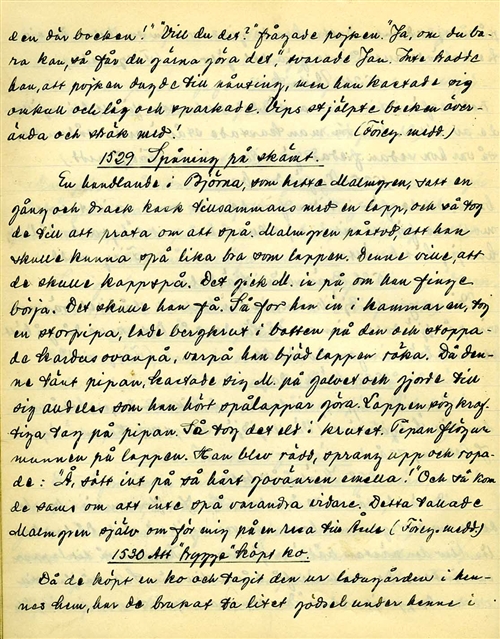 den där bocken!" "Vill du det?" frågade pojken. "Ja, om du ba-
ra kan, så får du gärna göra det", svarade Jan. Inte trodde
han, att pojken dugde till nånting, men han kastade sig
omkull och låg och sparkade. Vips stjälpte bocken över-
ända och strök med! (Föreg. medd.)
1529 Spåning på skämt.
En handlande i Björna, som hette Malmgren, satt en
gång och drack kask tillsammans med en lapp, och så tog
de till att prata om att spå. Malmgren påstod, att han
skulle kunna spå lika bra som lappen. Denne ville, att
de skulle kappspå. Det gick M. in på om han finge
börja. Det skulle han få. Så for han in i kammaren, tog
en storpipa, lade bergkrut i botten på den och stoppa-
de kardus ovanpå, varpå han bjöd lappen röka. Då den-
ne tänt pipan, kastade sig M. på golvet och gjorde till
sig alldeles som han hört spålappar göra. Lappen sög kraf-
tiga tag på pipan. Så tog det eld i krutet. Pipan flög ur
munnen på lappen. Han blev rädd, sprang upp och ropa-
de: "Å, sätt int på så hårt govänren emella!" Och så kom
de sams om att inte spå varandra vidare. Detta talade
Malmgren själv om för mig på en resa till Åsele (Föreg. medd.)
1530 Att bygga köpt ko.
Då de köpt en ko och tagit den ur ladugården i hen-
nes hem, har de brukat ta litet gödsel under henne i